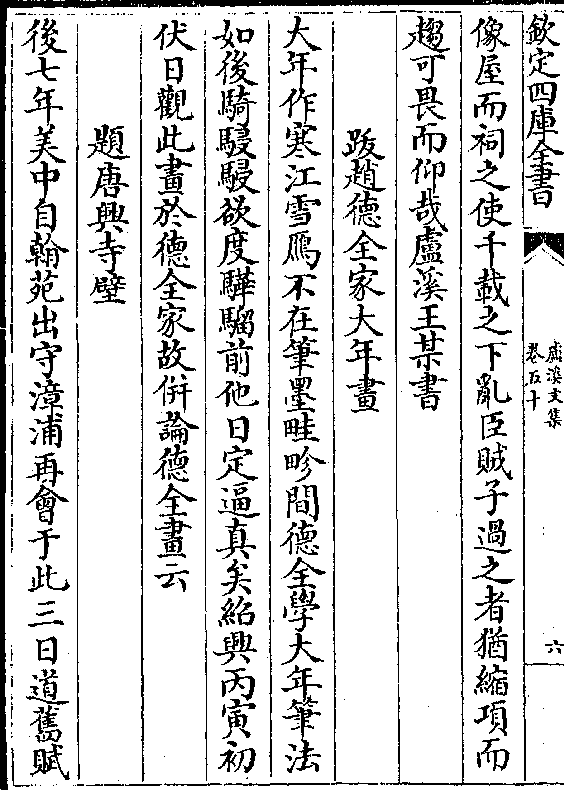 欽定四庫全書
盧溪文集
卷五十
六
像屋而祠之使千載之下亂臣賊子過之者猶縮項而
趨可畏而仰哉盧溪王某書
跋趙德全家大年畫
大年作寒江雪鴈不在筆墨畦畛間德全學大年筆法
如後騎駸駸欲度驊騮前他日定逼真矣紹興丙寅初
伏日觀此畫於德全家故併論德全畫云
題唐興寺壁
後七年美中自翰苑出守漳浦再會于此三日道舊賦